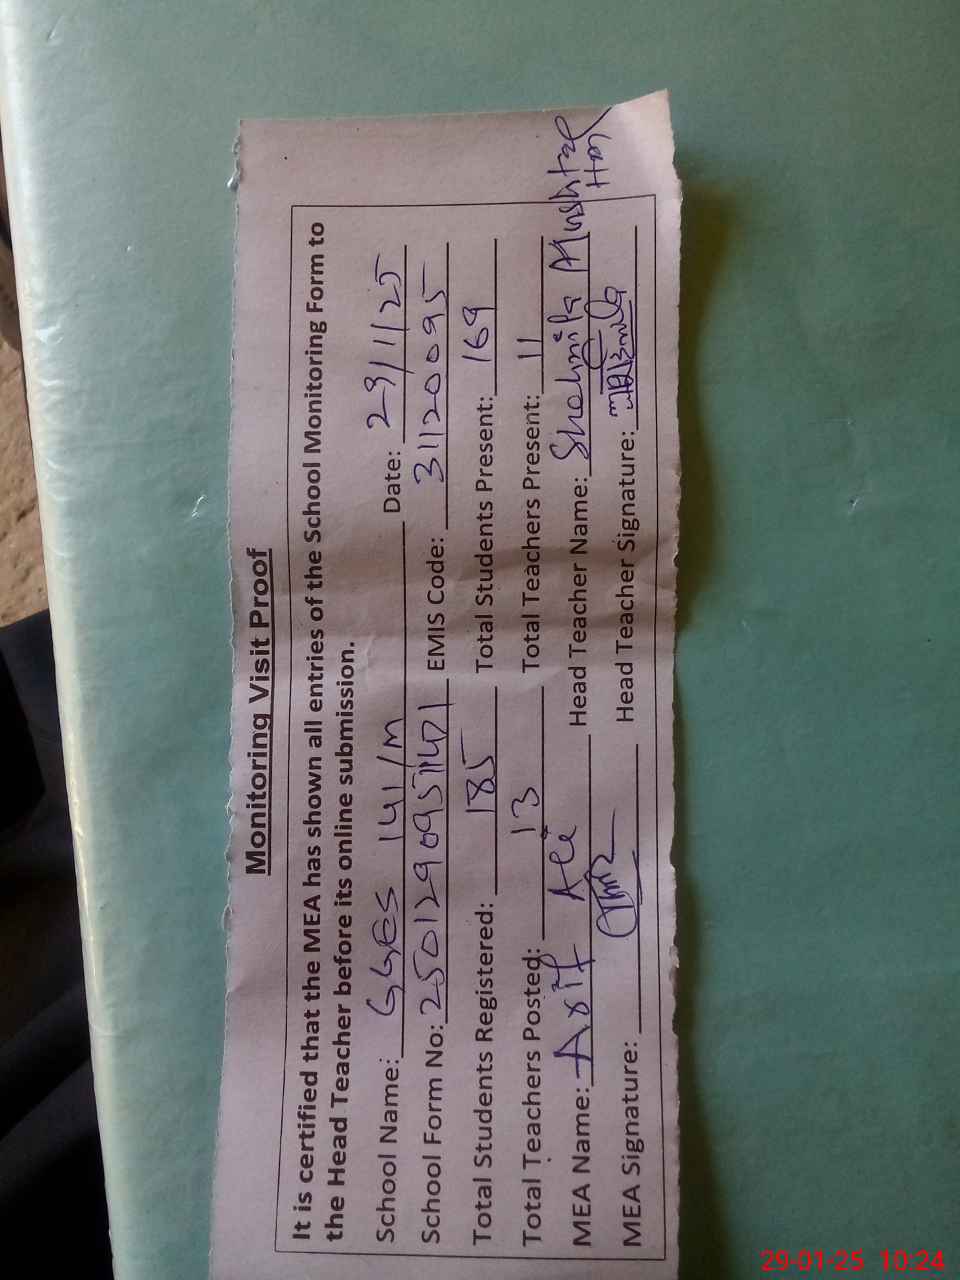 Monitoring Visit Proof
It is certified that the MEA has shown all entries of the School Monitoring Form to
the Head Teacher before its online submission.
School Name: GGES 141/M Date: 29/1/25
School Form No: EMIS Code: 31120095
Total Students Registered: 185 Total Students Present: 169
Total Teachers Posted: 13 Total Teachers Present: 11
MEA Name: Asif Ali Head Teacher Name: Shahnila Mushtaq
MEA Signature: Head Teacher Signature:
29-01-25 10:24